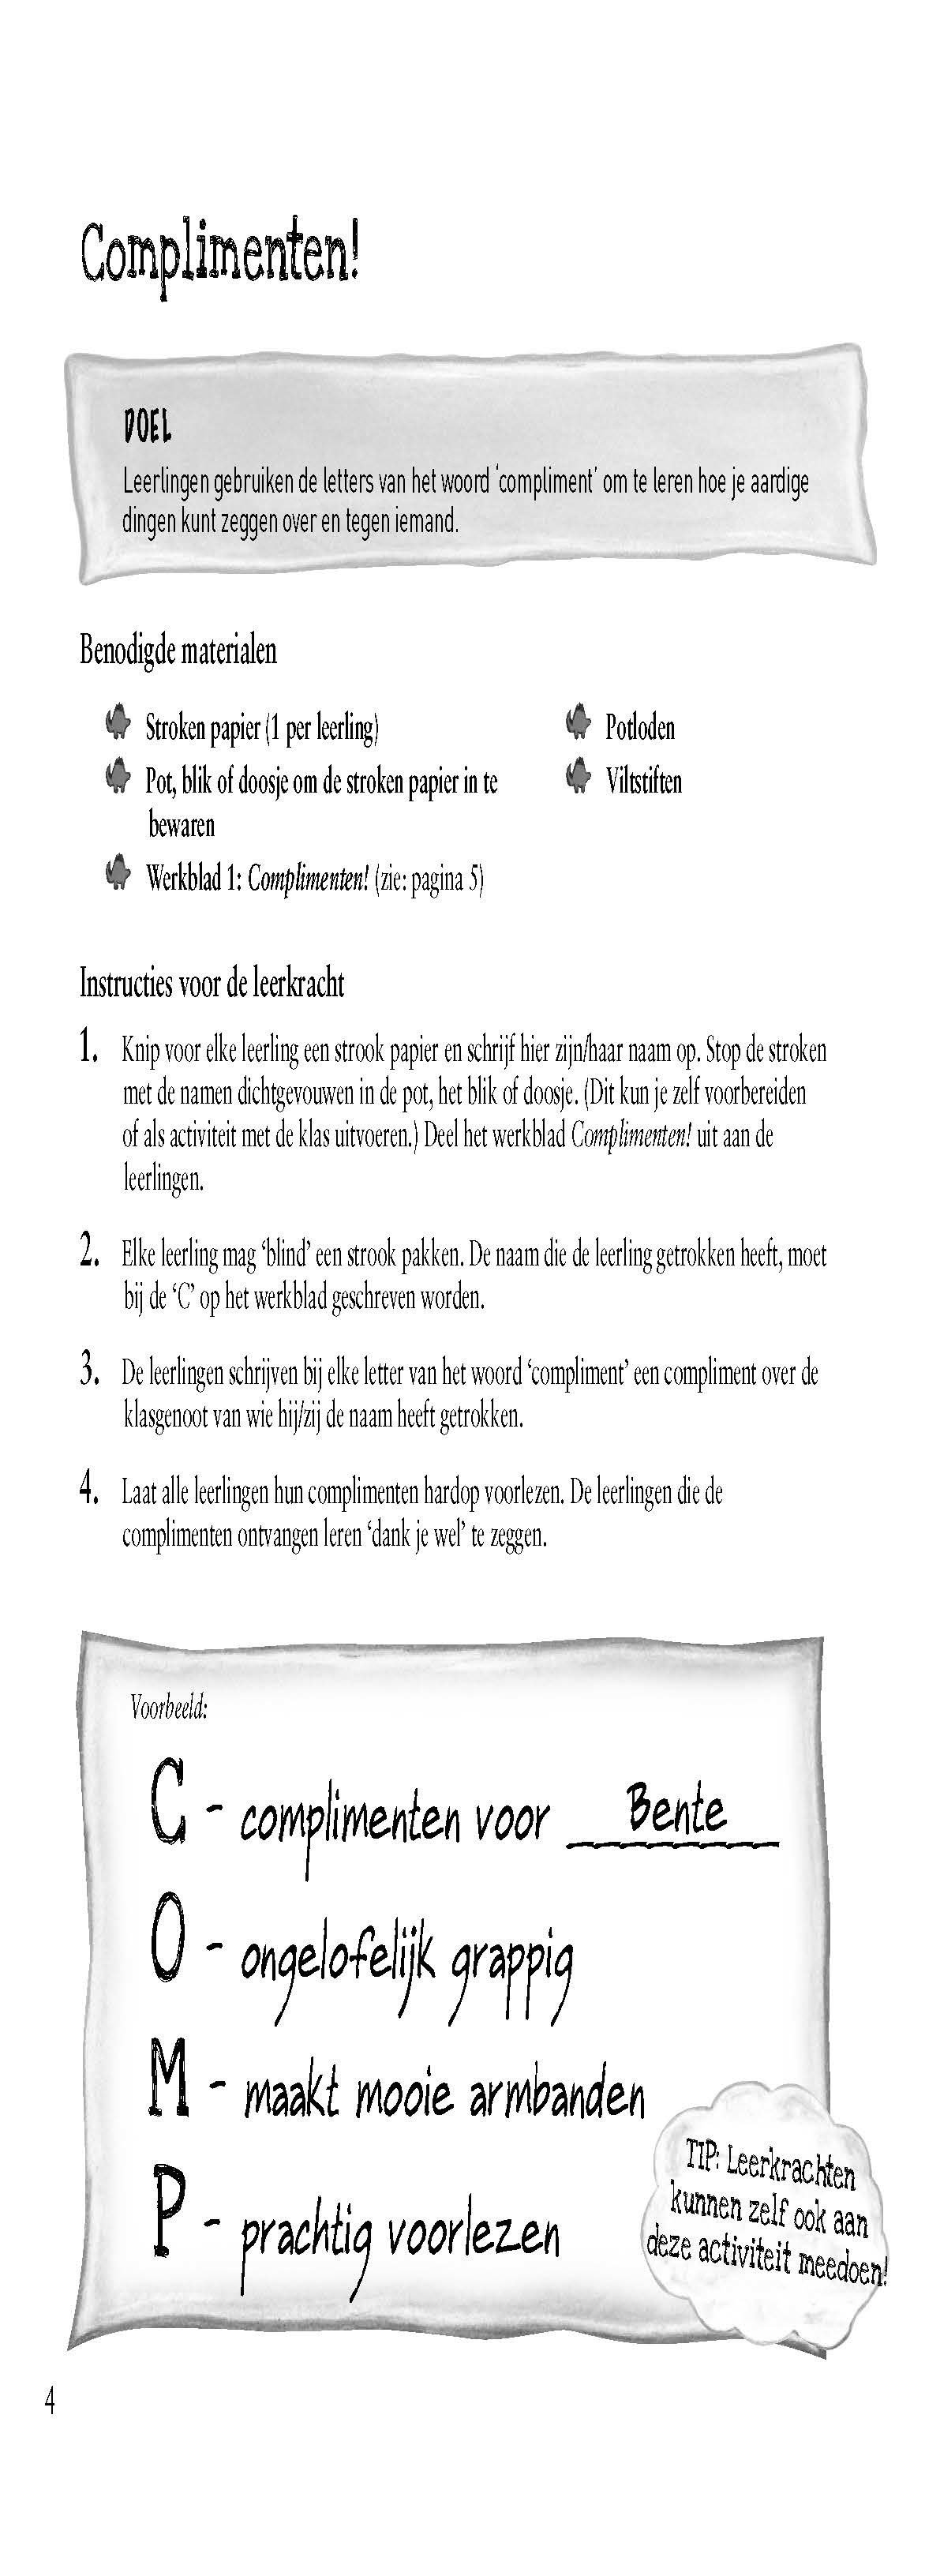 Complimenten!
DOEL
Leerlingen gebruiken de letters van het woord ‘compliment’ om te leren hoe je aardige
dingen kunt zeggen over en tegen iemand.
Benodigde materialen
Stroken papier (1 per leerling)
Pot, blik of doosje om de stroken papier in te
bewaren
Werkblad 1: Complimenten! (zie: pagina 5)
Potloden
Viltstiften
Instructies voor de leerkracht
1. Knip voor elke leerling een strook papier en schrijf hier zijn/haar naam op. Stop de stroken
met de namen dichtgevouwen in de pot, het blik of doosje. (Dit kun je zelf voorbereiden
of als activiteit met de klas uitvoeren.) Deel het werkblad Complimenten! uit aan de
leerlingen.
2. Elke leerling mag ‘blind’ een strook pakken. De naam die de leerling getrokken heeft, moet
bij de ‘C’ op het werkblad geschreven worden.
3. De leerlingen schrijven bij elke letter van het woord ‘compliment’ een compliment over de
klasgenoot van wie hij/zij de naam heeft getrokken.
4. Laat alle leerlingen hun complimenten hardop voorlezen. De leerlingen die de
complimenten ontvangen leren ‘dank je wel’ te zeggen.
Voorbeeld:
C - complimenten voor Bente
O - ongelofelijk grappig
M - maakt mooie armbanden
P - prachtig voorlezen
TIP: Leerkrachten
kunnen zelf ook aan
deze activiteit meedoen!
4